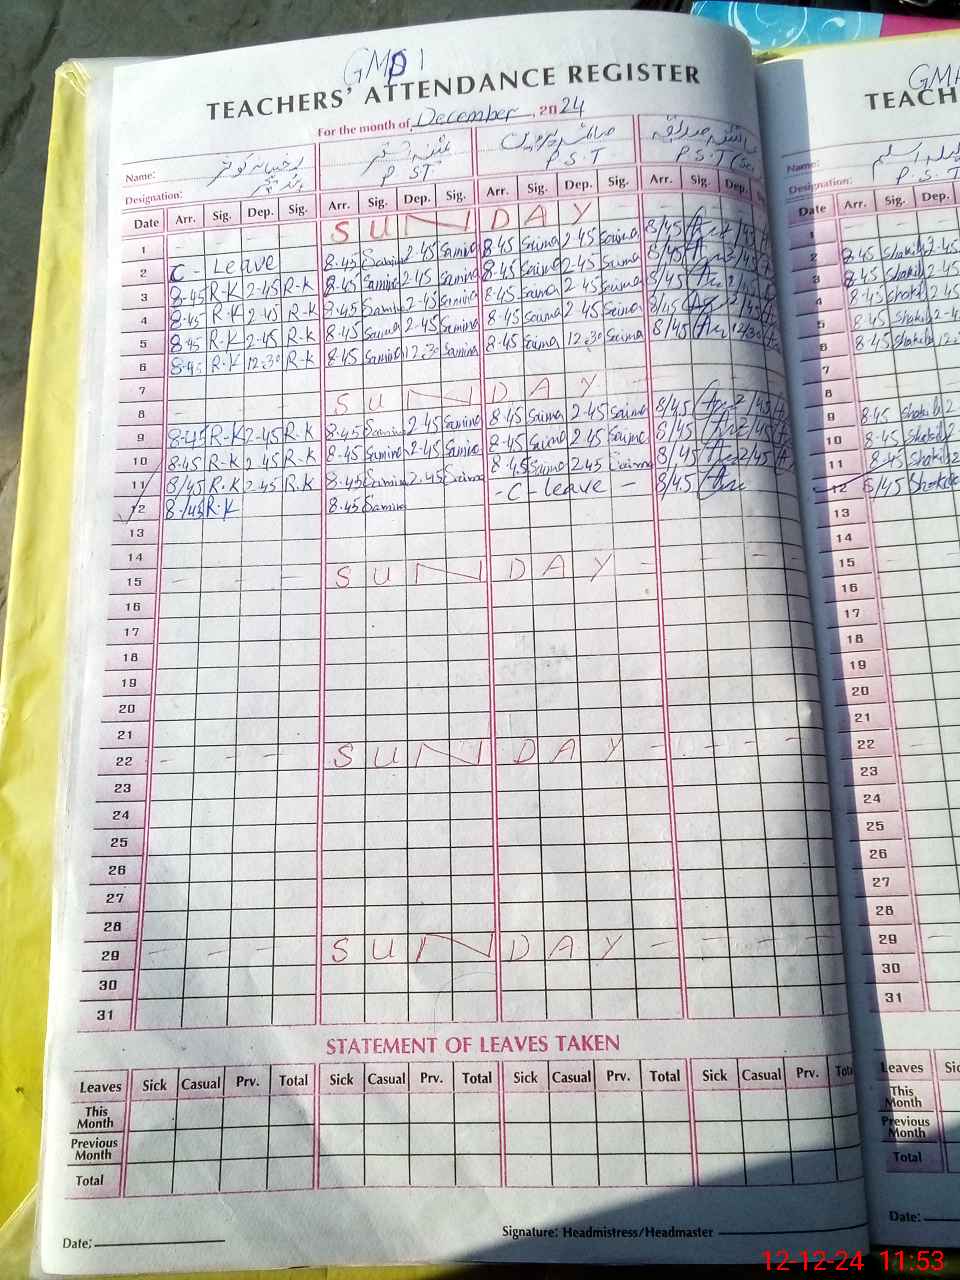 TEACHERS' ATTENDANCE REGISTER
For the month of December, 2024
Name:
P.S.T. P.S.T P.S.T
Designation:
Date Arr. Sig. Dep. Sig. Arr. Sig. Dep. Sig. Arr. Sig. Dep. Sig. Arr. Sig. Dep.
1 SUNDAY
2 C - Leave 8-45 Samina 2-45 Samina 8-45 Saima 2-45 Saima 8/45 2/45
3 8-45 R-K 2-45 R-K 8-45 Samina 2-45 Samina 8-45 Saima 2-45 Saima 8/45 2/45
4 8-45 R-K 2-45 R-K 8-45 Samina 2-45 Samina 8-45 Saima 2-45 Saima 8/45 2/45
5 8-45 R-K 2-45 R-K 8-45 Samina 2-45 Samina 8-45 Saima 2-45 Saima 8/45 2/45
6 8-45 R-K 12-30 R-K 8-45 Samina 12-30 Samina 8-45 Saima 12-30 Saima 8/45 12/30
7
8 SUNDAY
9 8-45 R-K 2-45 R-K 8-45 Samina 2-45 Samina 8-45 Saima 2-45 Saima 8/45 2/45
10 8-45 R-K 2-45 R-K 8-45 Samina 2-45 Samina 8-45 Saima 2-45 Saima 8/45 2/45
11 8/45 R-K 2-45 R-K 8-45 Samina 2-45 Samina 8-45 Saima 2-45 Saima 8/45 2/45
12 8/45 R-K 8-45 Samina - C - leave - 8/45
13
14
15 SUNDAY
16
17
18
19
20
21
22 SUNDAY
23
24
25
26
27
28
29 SUNDAY
30
31
STATEMENT OF LEAVES TAKEN
Leaves Sick Casual Prv. Total Sick Casual Prv. Total Sick Casual Prv. Total Sick Casual Prv.
This Month
Previous Month
Total
Date:
Signature: Headmistress/Headmaster
Name:
P.S.T
Designation:
Date Arr. Sig. Dep.
1
2 8-45 Shakil 2-45
3 8-45 Shakil 2-45
4 8-45 Shakil 2-45
5 8-45 Shakil
6 8-45 Shakil
7
8
9 8-45 Shakil
10 8-45 Shakil
11 8-45 Shakil
12 8/45
13
14
15
16
17
18
19
20
21
22
23
24
25
26
27
28
29
30
31
Leaves
This Month
Previous Month
Total
Date:
12-12-24 11:53